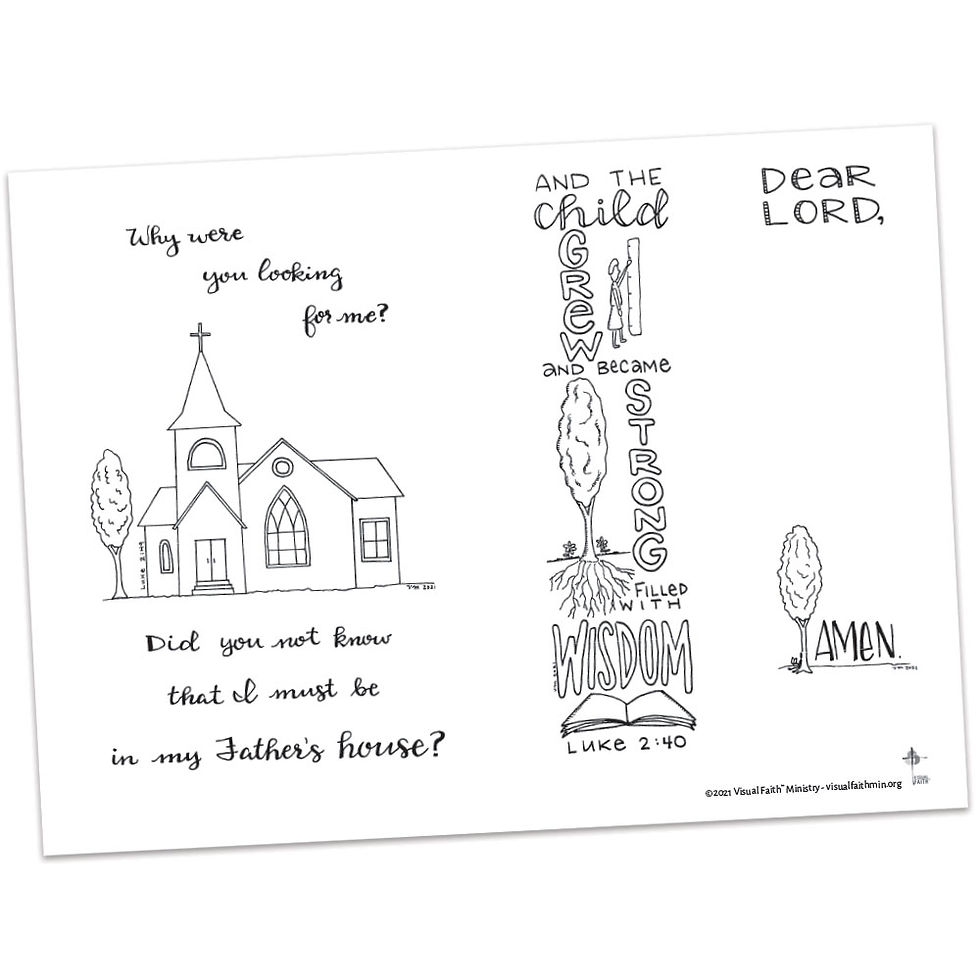 Why were
you looking
for me?
Luke 2:49
Did you not know
that I must be
in my Father's house?
AND THE
child
GREW
AND BECAME
STRONG
FILLED
WITH
WISDOM
LUKE 2:40
DEAR
LORD,
AMEN.
©2021 Visual Faith™ Ministry - visualfaithmin.org
VISUAL
FAITH